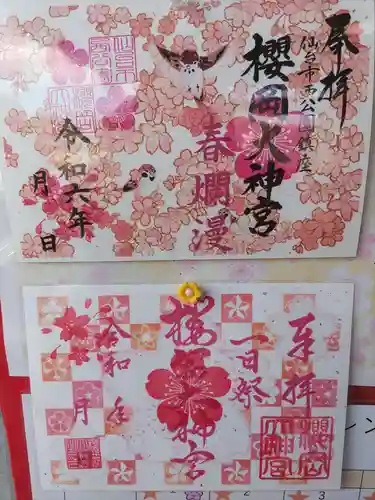 奉拝
仙台市西公園鎮座
櫻岡大神宮
春爛漫
令和六年
月
日
奉拝
一日祭
櫻岡大神宮
令和 年
月
櫻岡
大神宮